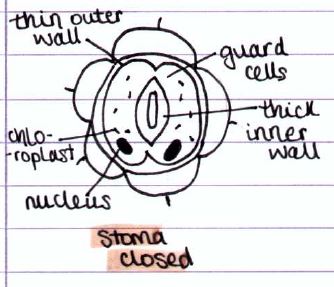 thin outer
wall
guard
cells
thick
inner
wall
chlo-
-roplast
nucleus
stoma
closed